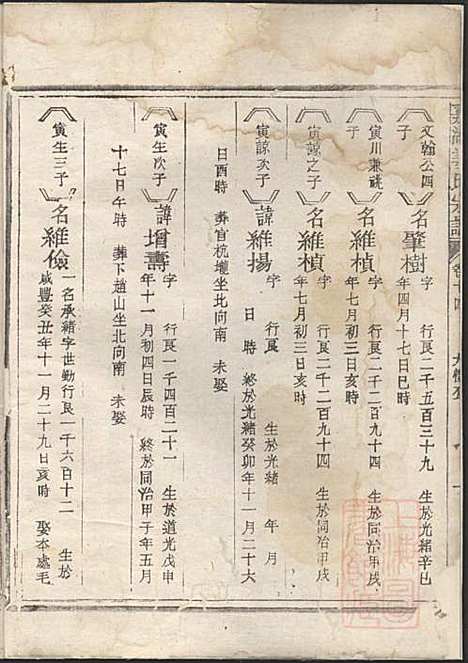 文翰公四子
名肇樹
字 行艮二千五百三十九 生於光緒辛巳
年四月十七日巳時
寅川兼祧子
名維楨
字 行艮二千二百九十四 生於同治甲戌
年七月初三日亥時
寅諒之子
名維楨
字 行艮二千二百九十四 生於同治甲戌
年七月初三日亥時
寅諒次子
諱維揚
字 行艮 生於光緒 年 月
日 時 終於光緒癸卯年十一月二十六
日酉時 葬官杭壠坐北向南 未娶
寅生次子
諱增壽
字 行艮一千四百二十一 生於道光戊申
年十一月初四日辰時 終於同治甲子年五月
十七日午時 葬下趙山坐北向南 未娶
寅生三子
名維儉
一名承緒字世勤行艮一千六百十二 生於
咸豐癸丑年十一月二十九日亥時 娶本處毛